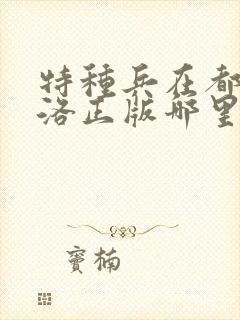 特種兵在都
洛正版哪里
竇楠